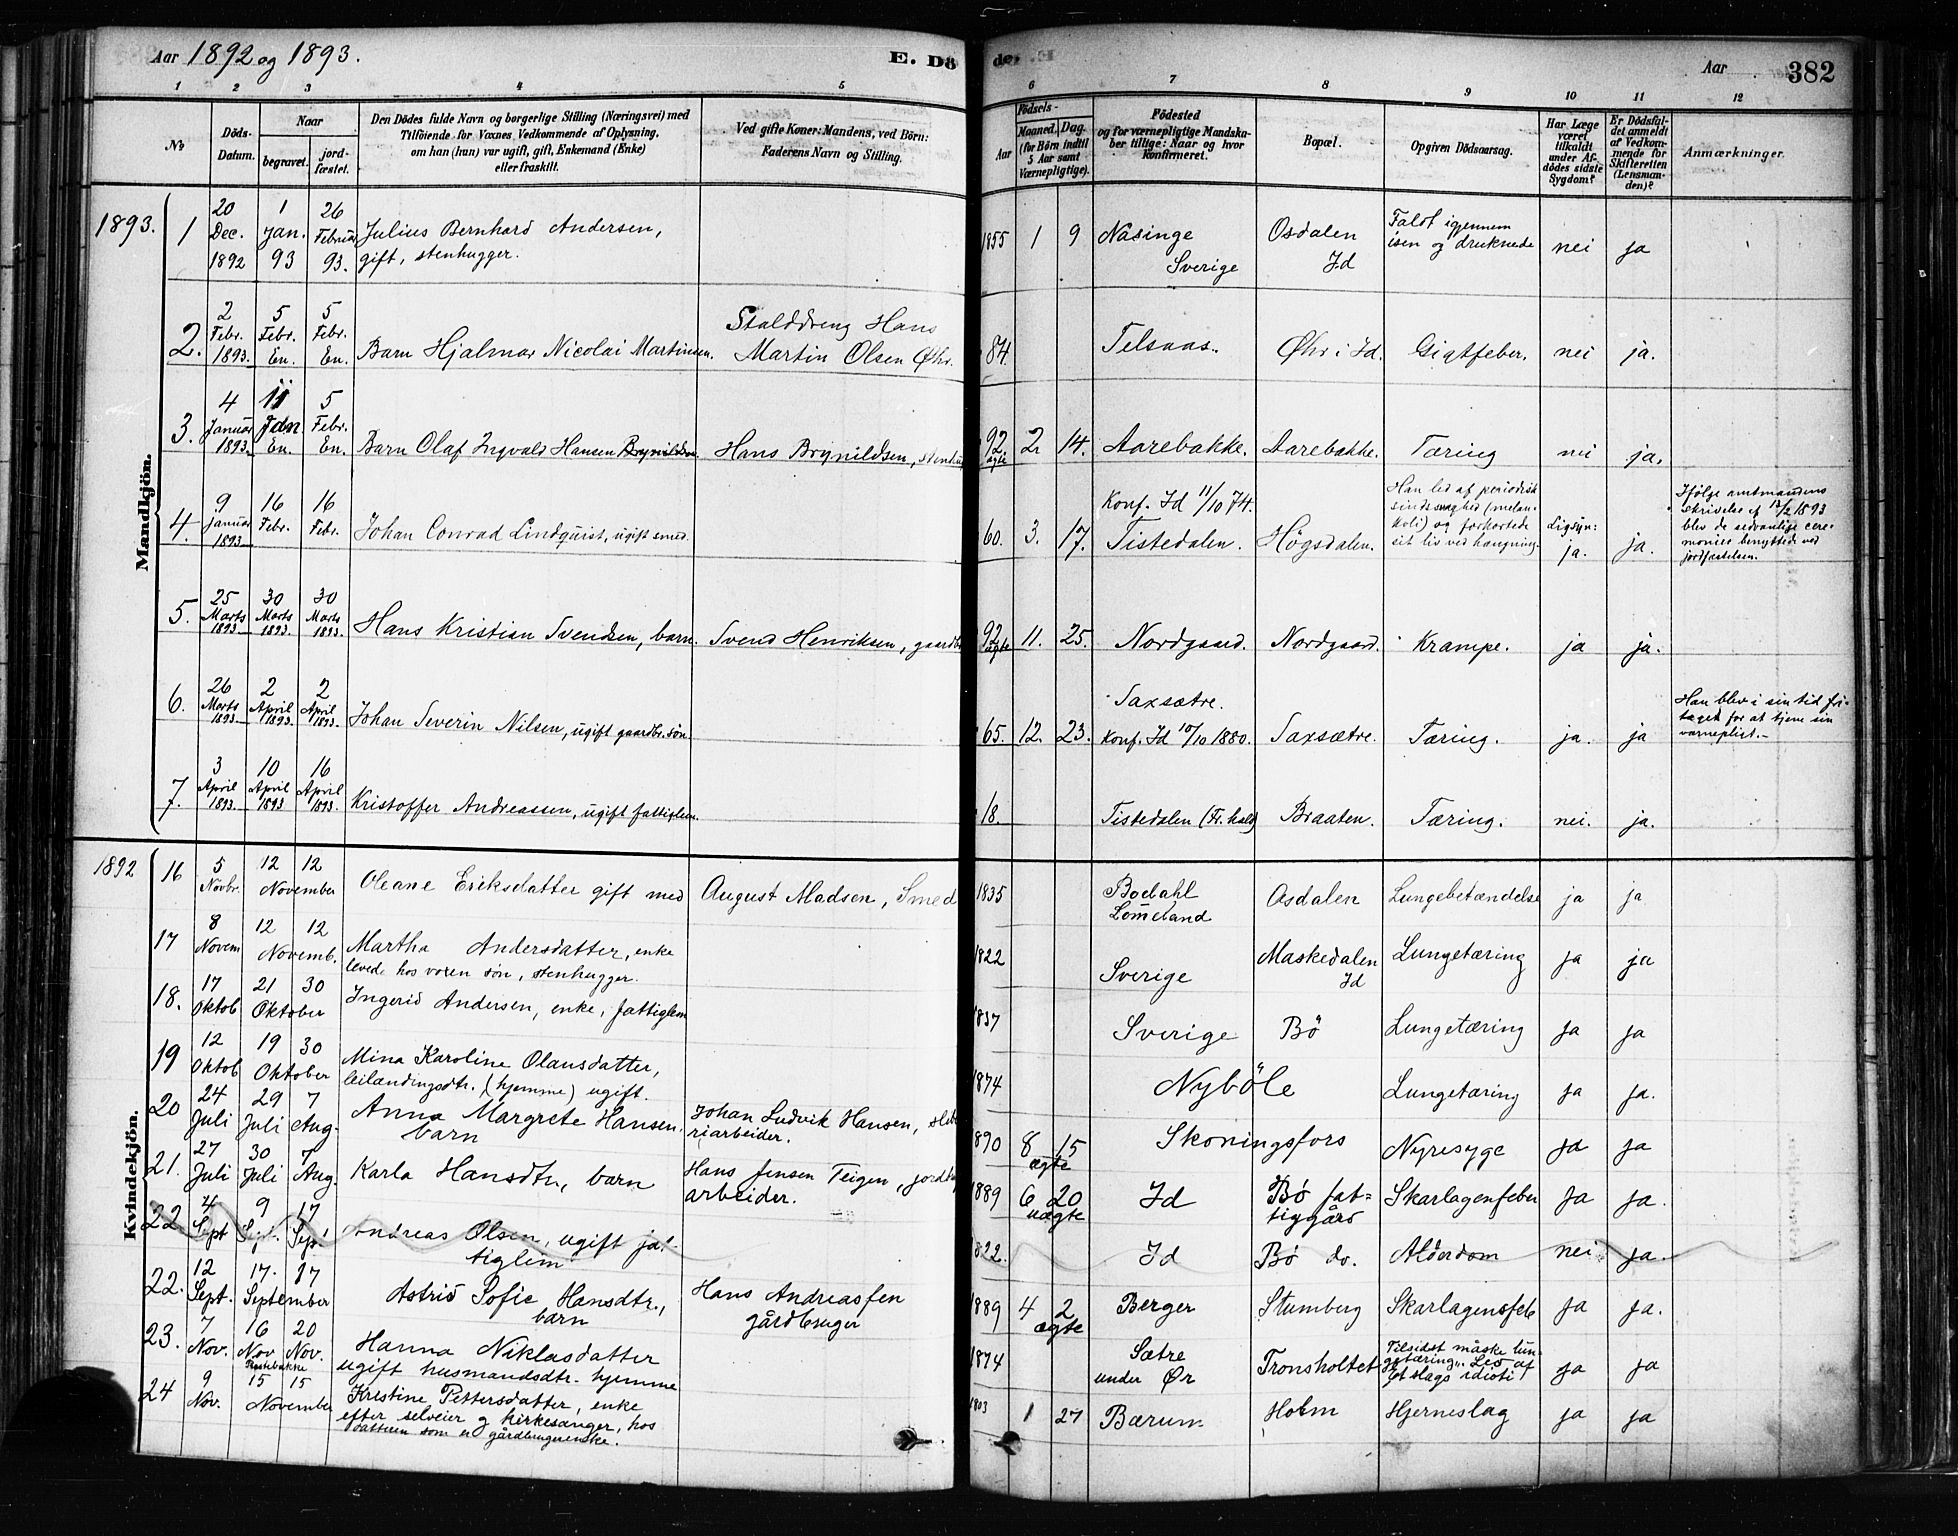 Aar 1892 og 1893.
E. Dö
de. E.
Aar
382
1 2 3 4 5 6 7 8 9 10 11 12
No
Döds-Datum.
Naar
begravet.
jord-fæstet.
Den Dödes fulde Navn og borgerlige Stilling (Næringsvei) med
Tilföiende for Voxnes Vedkommende af Oplysning,
om han (hun) var ugift, gift, Enkemand (Enke)
eller fraskilt.
Ved gifte Koner: Mandens, ved Börn:
Faderens Navn og Stilling.
Födsels-
Aar
Maaned. Dag.
(for Börn indtil
5 Aar samt
Værnepligtige).
Födested
og for værnepligtige Mandska-
ber tillige: Naar og hvor
Konfirmeret.
Bopæl.
Opgiven Dödsaarsag.
Har Læge
været
tilkaldt
under Af-
dödes sidste
Sygdom?
Er Dödsfal-
det anmeldt
af Vedkom-
mende for
Skifteretten
(Lensman-
den)?
Anmærkninger.
Mandkjön.
1893. 1 20 Dec. 1892 1 Jan. 93 26 Februar 93. Julius Bernhard Andersen,
gift, stenhugger.
1855 1 9 Näsinge
Sverige
Osdalen
Id
Faldt igjennem
isen og druknede
nei ja
2. 2 Febr. 1893. 5 Febr. En. 5 Febr. En. Barn Hjalmar Nicolai Martinsen.
Stalddreng Hans
Martin Olsen Øhr.
84. Telsaas. Øhr i Id. Gigtfeber. nei ja.
3. 4 Januar 1893. 11 Jan En. 5 Febr. En. Barn Olaf Ingvald Hansen Brynildsen. Hans Brynildsen,
92. ægte 2 14. Aarebakke. Aarebakke. Tæring nei ja.
4. 9 Januar 1893 16 Febr. 16 Febr. Johan Conrad Lindquist, ugift smed.
60. 3. 17. Konf. Id 11/10 74.
Tistedalen.
Högsdalen.
Han led af periodisk
sindssvaghed (melan-
koli) og forkortede
sit liv ved hængning.
Ligsyn:
ja.
ja.
Ifölge amtmandens
skrivelse af 13/2 1893
blev de sedvanlige cere-
monier benyttede ved
jordfæstelsen.
5. 25 Marts 1893 30 Marts 1893. 30 Marts 1893. Hans Kristian Svendsen, barn. Svend Henriksen, gaardbr
92 ægte 11. 25. Nordgaard. Nordgaard. Krampe. ja ja.
6. 26 Marts 1893. 2 April 1893. 2 April 1893. Johan Severin Nilsen, ugift gaardbr. sön
65. 12. 23. Saxsætre.
Konf. Id 10/10 1880.
Saxsætre. Tæring. ja. ja
Han blev i sin tid fri-
taget for at tjene sin
værnepligt.
7. 3 April 1893. 10 April 1893 16 April 1893. Kristoffer Andreassen, ugift fattiglem.
18. Tistedalen (Fr.hald) Braaten. Tæring. nei. ja.
Kvindekjön.
1892 16 5 Novbr. 12 12 November Oleane Eriksdatter gift med August Madsen, Smed
1835 Bodahl
Lommeland
Osdalen Lungebetændelse ja ja
17 8 Novem 12 12 Novemb. Martha Andersdatter, enke
levede hos voxen søn, stenhugger.
1822 Sverige Maskedalen
Id
Lungetæring ja ja
18. 17 Oktob 21 30 Oktober Ingerid Andersen, enke, fattiglem
1837 Sverige Bö Lungetæring ja ja
19 12 Oktob 19 30 Oktober Mina Karoline Olausdatter,
leilændingsdtr. (hjemme) ugift.
1874 Nyböle Lungetæring ja ja.
20 24 Juli 29 Juli 7 Aug. Anna Margrete Hansen.
barn
Johan Ludvik Hansen,
riarbeider.
890 8 15 ægte Skoningsfors Nyresyge ja ja
21. 27 Juli 30 Juli 7 Aug Karla Hansdtr, barn Hans Jensen Teigen,
arbeider.
1889 6 20 uægte Id Bö fat-
tiggård
Skarlagenfeber ja ja.
22 4 Sept 9 Sept. 17 Sept. Andreas Olsen, ugift fat-
tiglem
822. Id Bö do. Alderdom nei ja.
22. 12 Sept. 17. 17 September Astrid Sofie Hansdtr.,
barn
Hans Andreassen
gårdbruger
1889 4 2 ægte Berger Stumberg Skarlagensfebe ja ja.
23. 7 Nov. 16 Nov 20 Nov. Hanna Niklasdatter
ugift husmandsdtr. hjemme
1874 Sætre
under Ør
Tronsholtet Tilsidst måske lun-
getæring. Led af
et slags idioti
ja ja
24 9 Nov. 15 15 November Kristine Pettersdatter, enke
efter selveier og kirkesanger, hos
datteren som er gårdbrugerenke.
1803 1 27 Bærum Holm Hjerneslag ja ja